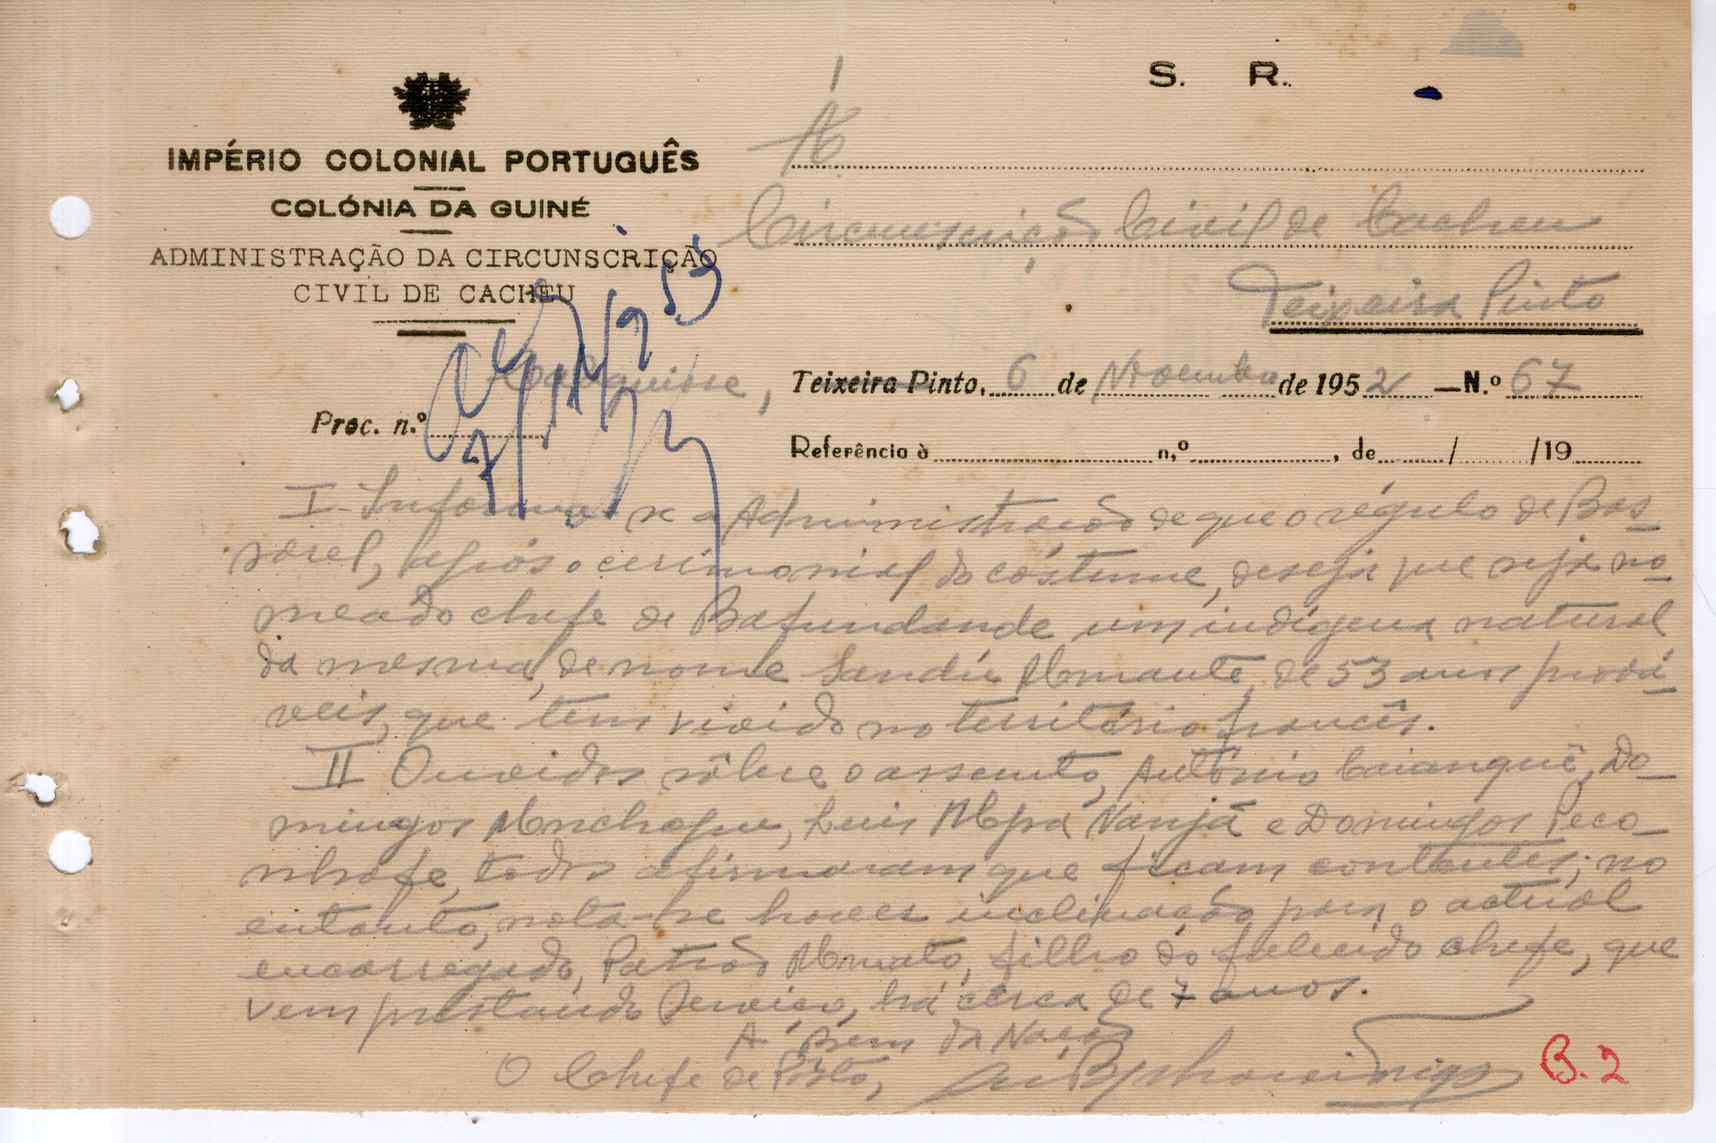 S. R.
À
IMPÉRIO COLONIAL PORTUGUÊS
COLÓNIA DA GUINÉ
ADMINISTRAÇÃO DA CIRCUNSCRIÇÃO
CIVIL DE CACHEU
Circunscrição Civil de Cacheu
Teixeira Pinto
Teixeira Pinto, 6 de Novembro de 1952 —N.º 67
Proc. n.º
Referência à n.º , de / /19
I- Informo-se a Administração de que o régulo de Bas-
sarel, após o cerimonial do costume, deseja que seja no-
meado chefe de Bafundande um indígena natural
da mesma, de nome Sandú Mmante, de 53 anos prová-
veis, que tem vivido no território francês.
II Ouvidos sôbre o assunto, António Caianguê, Do-
mingos, Luis Mpa Nanjá e Domingos Peca-
, todos afirmaram que ficam contentes; no
entanto, nota-se haver inclinação para o actual
encarregado, Patrão Mmato, filho do falecido chefe, que
vem prestando serviço, há cêrca de 7 anos.
A Bem da Nação
O Chefe de Pôsto,
B.2